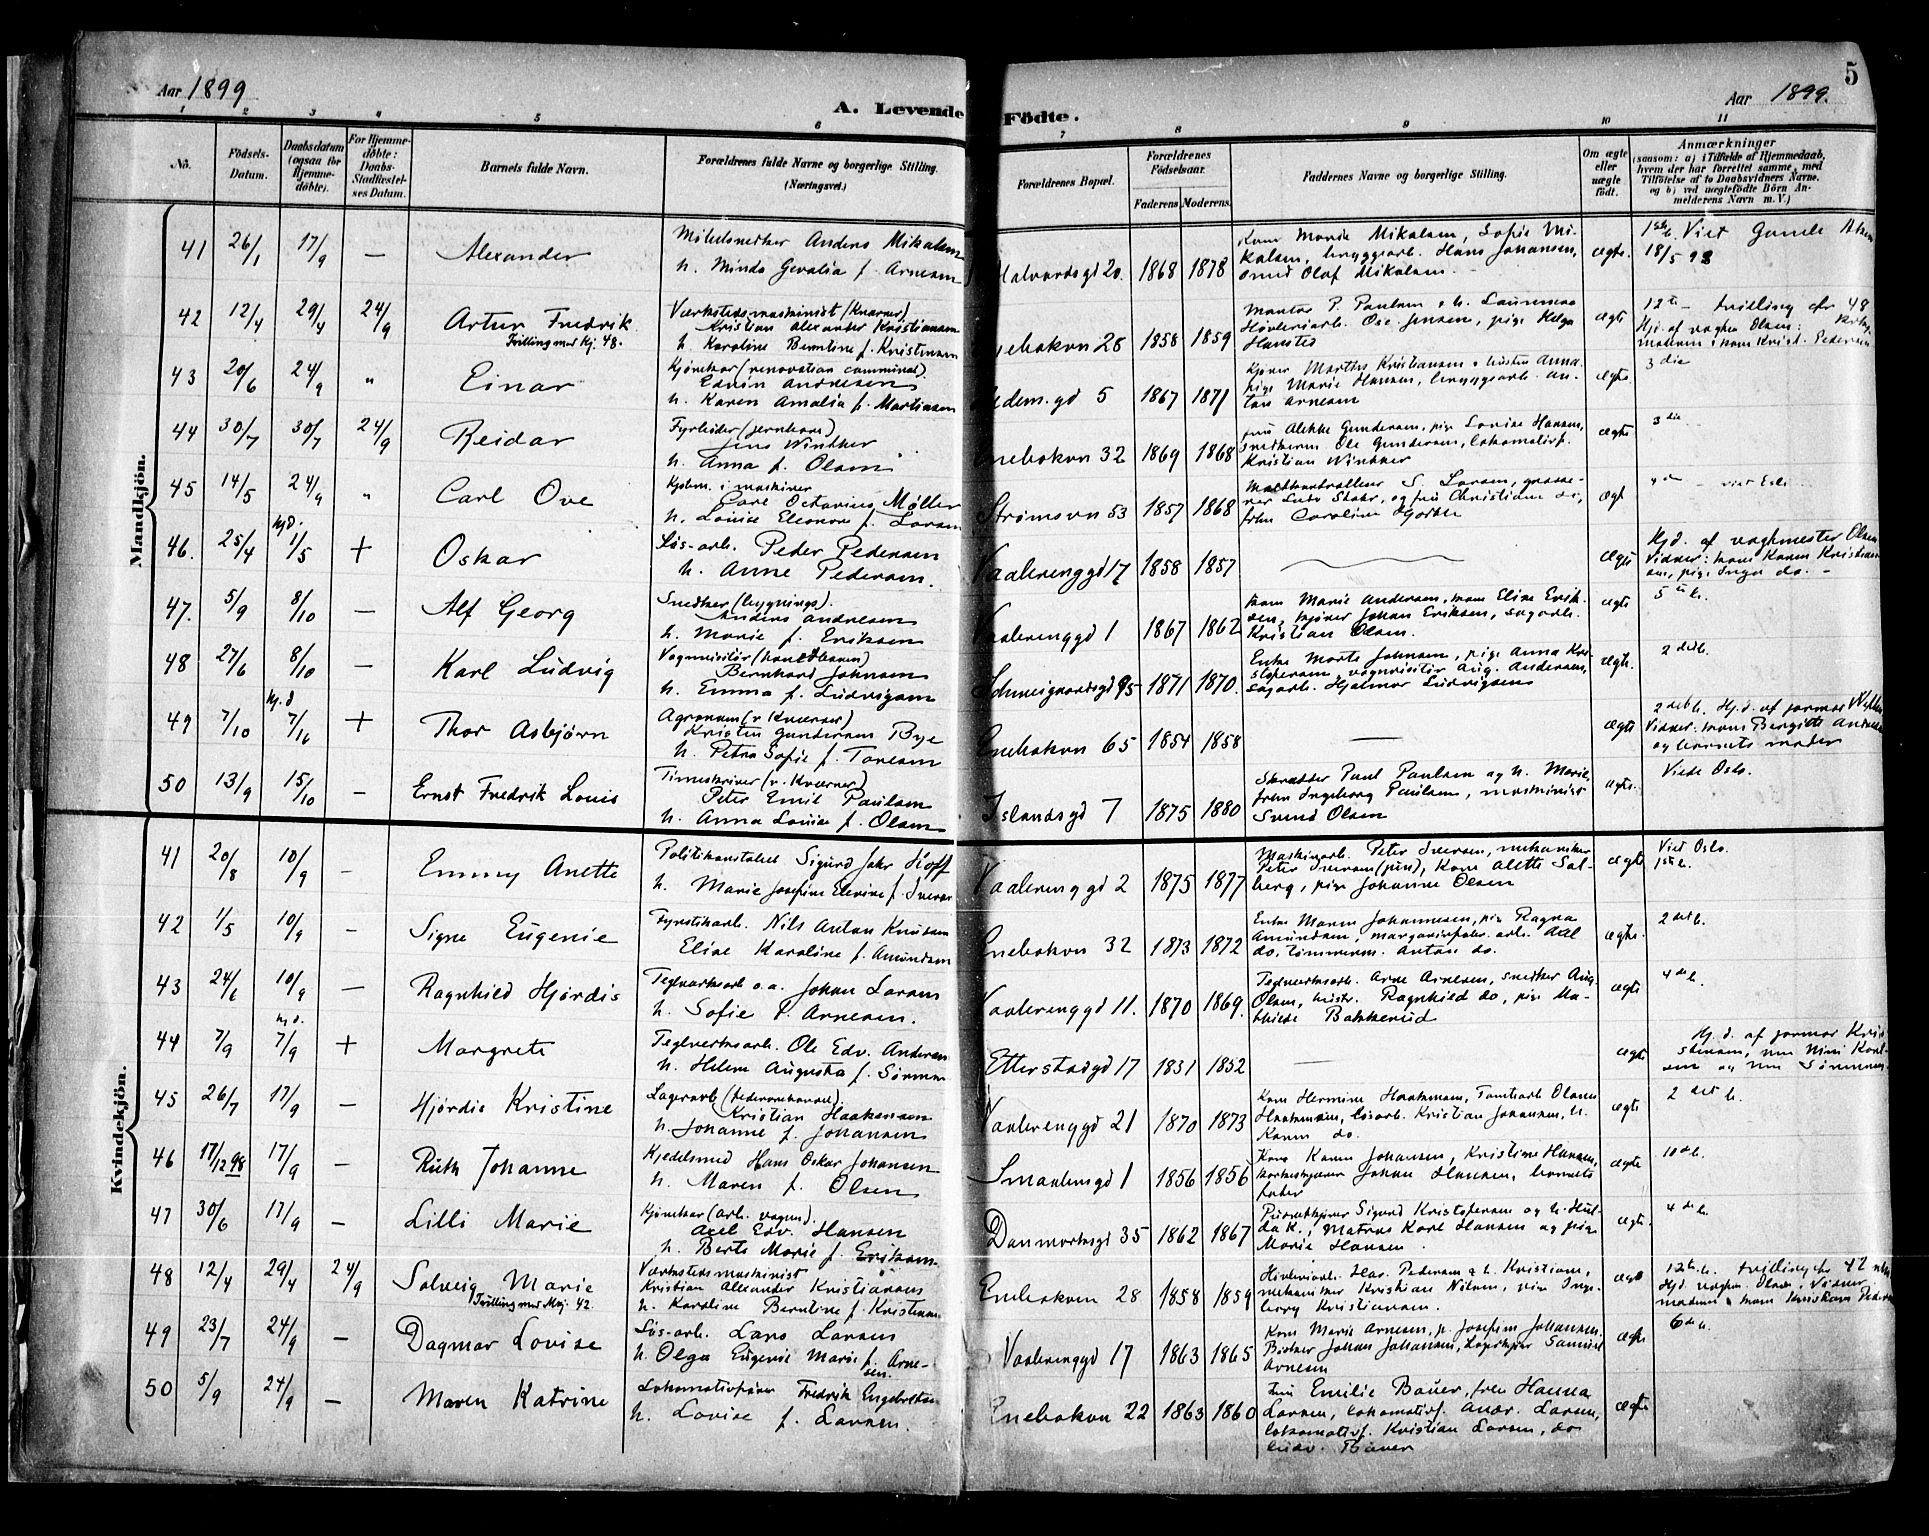 5
Aar 1899
A. Levende Fødte.
Aar 1899.
1 2 3 4 5 6 7 8 9 10 11
No. Fødsels-Datum. Daabsdatum (ogsaa for Hjemmedøbte). For Hjemmedøbte: Daabs-Stadfæstelses Datum. Barnets fulde Navn. Forældrenes fulde Navne og borgerlige Stilling. (Næringsvei.) Forældrenes Bopæl. Forældrenes Fødselsaar. Faderens. Moderens. Faddernes Navne og borgerlige Stilling. Om ægte eller uægte født. Anmærkninger (saasom: a) i Tilfælde af Hjemmedaab, hvem der har forrettet samme, med Tilføielse af to Daabsvidners Navne, og b) ved uægtefødte Børn Anmelderens Navn m. V.)
Mandkjön.
41 26/1 17/9 — Alexander Møbelsnedker Anders Mikalsen
h. Minda Gevalia f. Arnesen Halvardsgd 20. 1868 1878 Kone Marie Mikalsen, Sofie Mikalsen, bryggearb. Hans Johansen, Smed Olaf Mikalsen ægte 18/5 98
42 12/4 29/4 24/9 Artur Fredrik
Tvilling med Kj. 48. Værkstedsmaskinist (Kværner)
Kristian Alexander Kristiansen
h. Karoline Berntine f. Kristiansen Enebakvn 28 1858 1859 Montør P. Paulsen ægte 12te tvilling
43 20/6 24/9 " Einar Kjørekar (renovation communal)
Edvin Andresen
h. Karen Amalia f. Martinsen 5 1867 1871 Kjører Marthis Kristiansen, hustru Anna, pige Marie Hansen, bryggearb. Anton Arnesen ægte 3die
44 30/7 30/7 24/9 Reidar Fyrbøder (jernbane)
Jens Winther
h. Anna f. Olsen Enebakvn 32 1869 1868 fru Alekke Gundersen, pige Lovise Hansen, snedkerm Ole Gundersen, lokomotivf. Kristian Winther ægte 3die
45 14/5 24/9 " Carl Ove Kjøbm. i maskiner
Carl Octavius Møller
h. Louise Eleonore f. Larsen Strømsvn 53 1857 1868 S. Larsen, og fru Christiane do, frøken Caroline ægt
46. 25/4 hjd. 1/5 + Oskar Løs-arb. Peder Pedersen
h. Anne Pedersen. Vaalerenggd 17 1858 1857 ægte Hjd. af vaghmester Olsen
47. 5/9 8/10 — Alf Georg Snedker (bygnings).
Anders Andresen
h. Marie f. Eriksen Vaalerenggd 1 1867 1862 Kone Marie Andersen, kone Elise Eriksen, kjører Johan Eriksen, sagarb. Kristian Olsen. ægte 5te b.
48 27/6 8/10 — Karl Ludvig Vognvisitør
Bernhard Johnsen
h. Emma f. Ludvigsen Schweigaardsgd 95 1871 1870. Enke Marte Johnsen, pige Anna Kristofersen, vognvisitør Aug. Andersen, sagarb. Hjalmar Ludvigsen ægte. 2det b.
49 7/10 hj.d 7/10 + Thor Asbjørn Agronom (v Kværner)
Kristen Gundersen Bye
h. Petra Sofie f. Toresen Enebakvn 65 1854 1858 — ægte 2det b. Hj.d. af jormor
og barnets moder
50 13/9 15/10 — Ernst Fredrik Louis Timeskriver (v. Kværner)
Peter Emil Paulsen
h. Anna Louise f. Olsen Islandsgd 7 1875 1880 Skrædder Paul Paulsen og h. Marie, frøken Ingeborg Paulsen, maskinist Svend Olsen ægte. Viede Oslo.
Kvindekjön.
41 20/8 10/9 — Emmy Anette Politikonstabel Sigurd Jahr Hoff
h. Marie Josefine Elevine f. Iversen Vaalerenggd 2 1875 1877 Maskinarb. Peter Iversen, mekaniker Peter Iversen (jun), Kone Alette Salberg, pige Johanne Olsen ægte Viet Oslo.
1ste b.
42 1/5 10/9 — Signe Eugenie Fyrstikarb. Nils Anton Knudsen
Elise Karoline f. Amundsen Enebakvn 32 1873 1872 Enke Maren Johannesen, pige Ragna Amundsen, margarinfabr. arb. do, tømmerm. Anton do. ægte. 2det b.
43 24/6 10/9 — Ragnhild Hjørdis Teglverksarb o.a. Johan Larsen
h. Sofie f. Arnesen. Vaalerenggd 11. 1870 1869. Teglverksarb. Arne Arnesen, snedker Aug. Olsen, hustr. Ragnhild do, pige Mathilde Bakkerud ægte 4de b.
44 7/9 hjd. 7/9 + Margrete Teglverksarb. Ole Edv. Andersen
h. Helene Augusta f. Sørensen Etterstadgd 17 1831 1852 — ægte Hj.d. af jormor Kristensen
45 26/7 17/9 — Hjørdis Kristine Lagerarb (lædervarehandel)
Kristian Haakensen
h. Johanne f. Johansen Vaalerenggd 21 1870 1873 Kone Hermine Haakensen, Tomtearb Olaves Haakensen, løsarb. Kristian Johansen, h. Karen do. ægte 2det b.
46 17/12 98 17/9 — Ruth Johanne Kjedelsmed Hans Oskar Johansen
h. Maren f. Olsen Smaalensgd 1 1856 1856 Kone Karen Johansen, Kristine Hansen, Johan Hansen, barnets fader ægte 10de b.
47 30/6 17/9 — Lilli Marie Kjørekar (arb. vogner).
Axel Edv. Hansen
h. Berte Marie f. Eriksen Danmarksgd 35 1862 1867 Sigurd Kristofersen og h. Hulda K., Matros Karl Hansen og pige Marie Hansen. ægte. 4de b.
48 12/4 29/4 24/9 Solveig Marie
Tvilling med Mkj. 42. Værkstedsmaskinist
Kristian Alexander Kristiansen
h. Karoline Berntine f. Kristiansen Enebakvn 28 1858 1859 Høvleriarb. Har. Pedersen & h. Kristiane, mekaniker Kristian Nilsen, pige Ingeborg Kristiansen. ægte 12te b. tvilling
49 23/7 24/9 — Dagmar Lovise Løs-arb. Lars Larsen
h. Olga Eugenie Marie f. Arnesen. Vaalerenggd 17 1863 1865 Kone Marie Arnesen, p. Josefine Johansen, Johan Johansen, Lagerkjører Samuel Arnesen ægte 6te b.
50 5/9 24/9 — Maren Katrine Lokomotivfører Fredrik Engebretsen
h. Lovise f. Larsen. Enebakvn 22 1863 1860 Fru Emilie Bauer, frøken Hanna Larsen, lokomotivf. Andr. Larsen, lokomotivf. Kristian Larsen, do Ludv. Bauer ægte